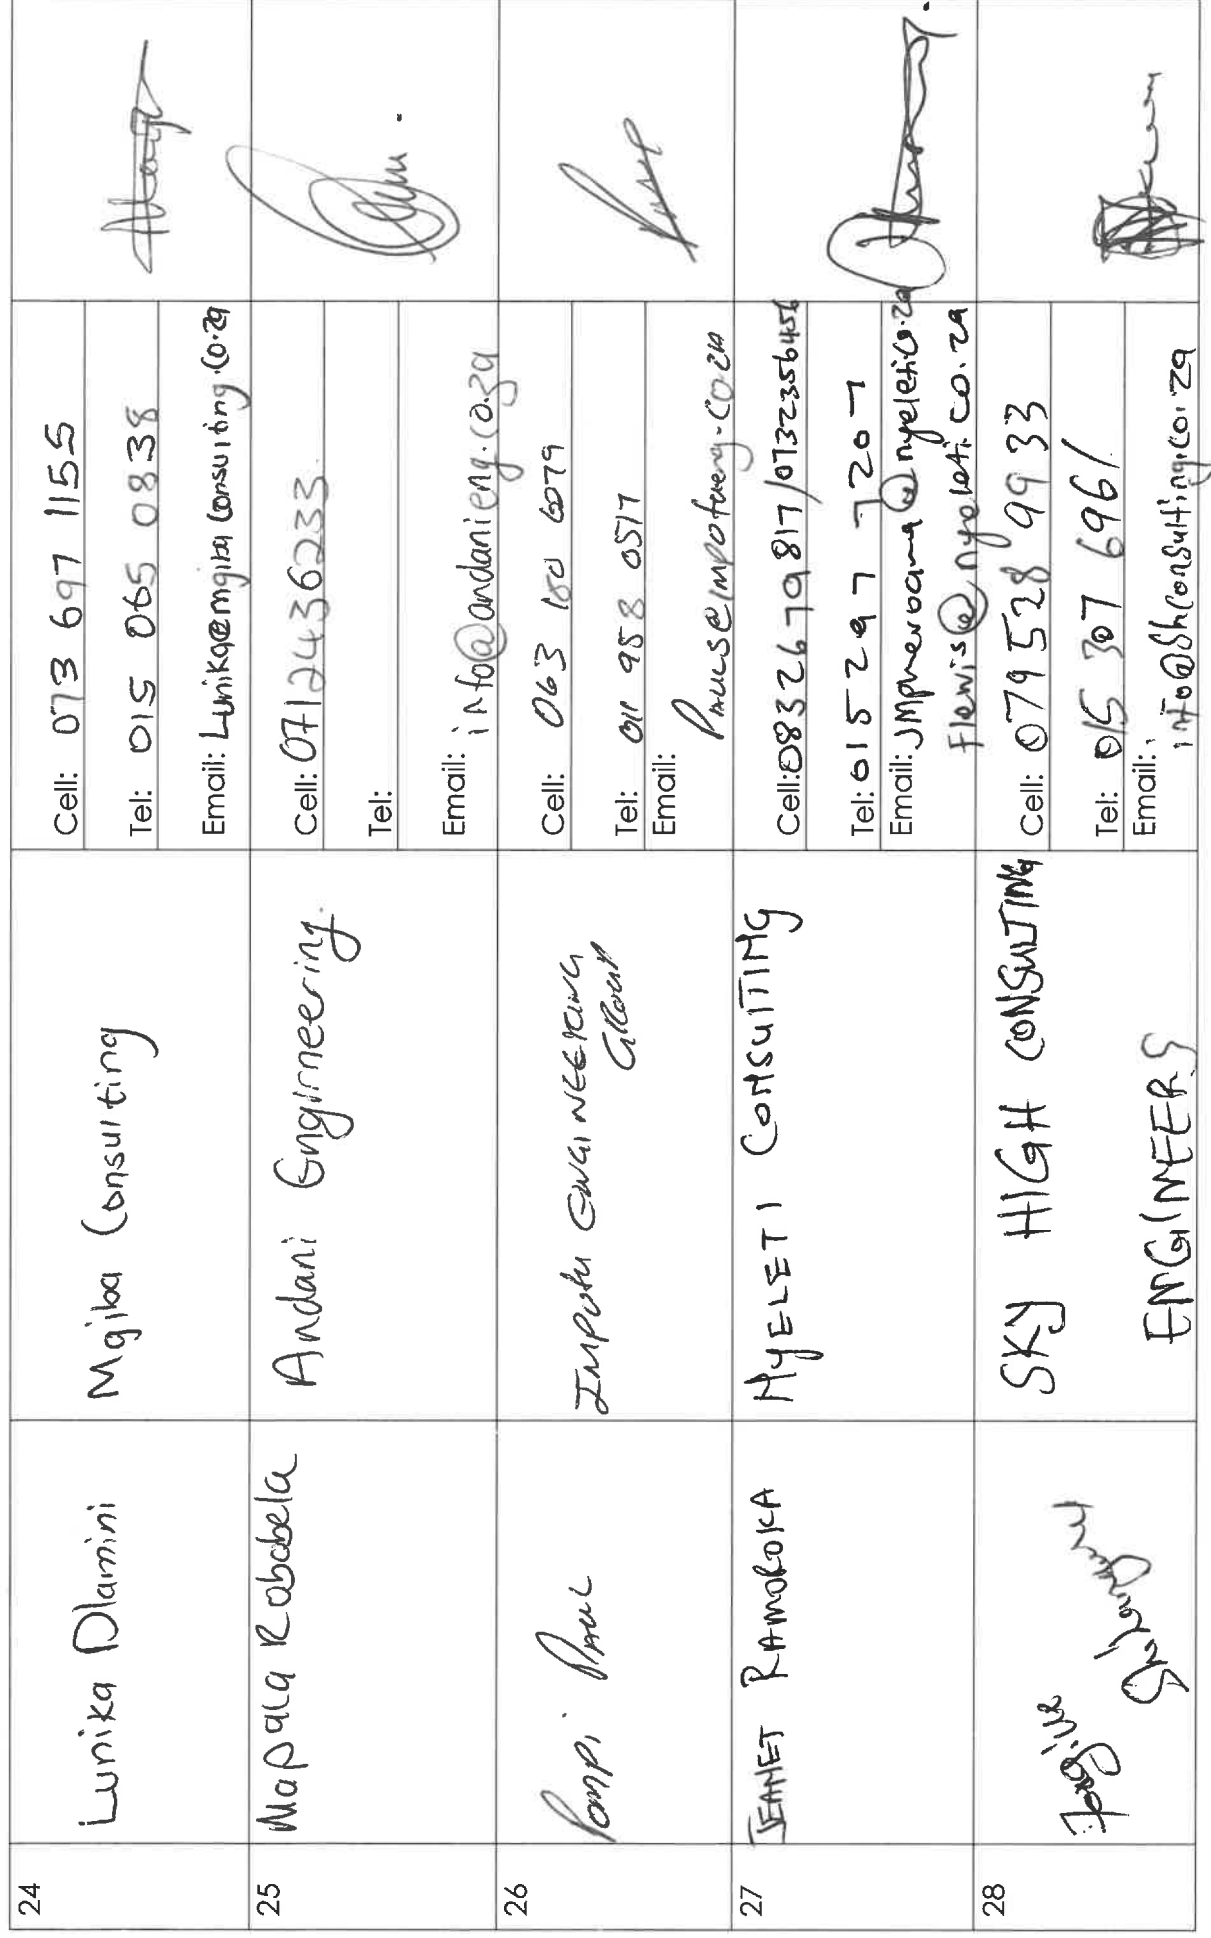 24
Lunika Dlamini
Mgiba Consulting
Cell: 073 697 1155
Tel: 015 065 0838
Email: Lunika@mgiba consulting.co.za
25
Mapala Rababela
Andani Engineering.
Cell: 0712436233
Tel:
Email: info@andanieng.co.za
26
Pompi Paul
Impotu Engineering
Group
Cell: 063 180 6079
Tel: 011 958 0517
Email:
Pauls@impotueng.co.za
27
JEANET RAMOROKA
NYELETI CONSULTING
Cell: 0832679817/0732356456
Tel: 015 297 7207
Email:
Flewis@nyeleti.co.za
28
SKY HIGH CONSULTING
ENGINEERS
Cell: 079 528 99 33
Tel: 015 307 6961
Email:
info@shconsulting.co.za